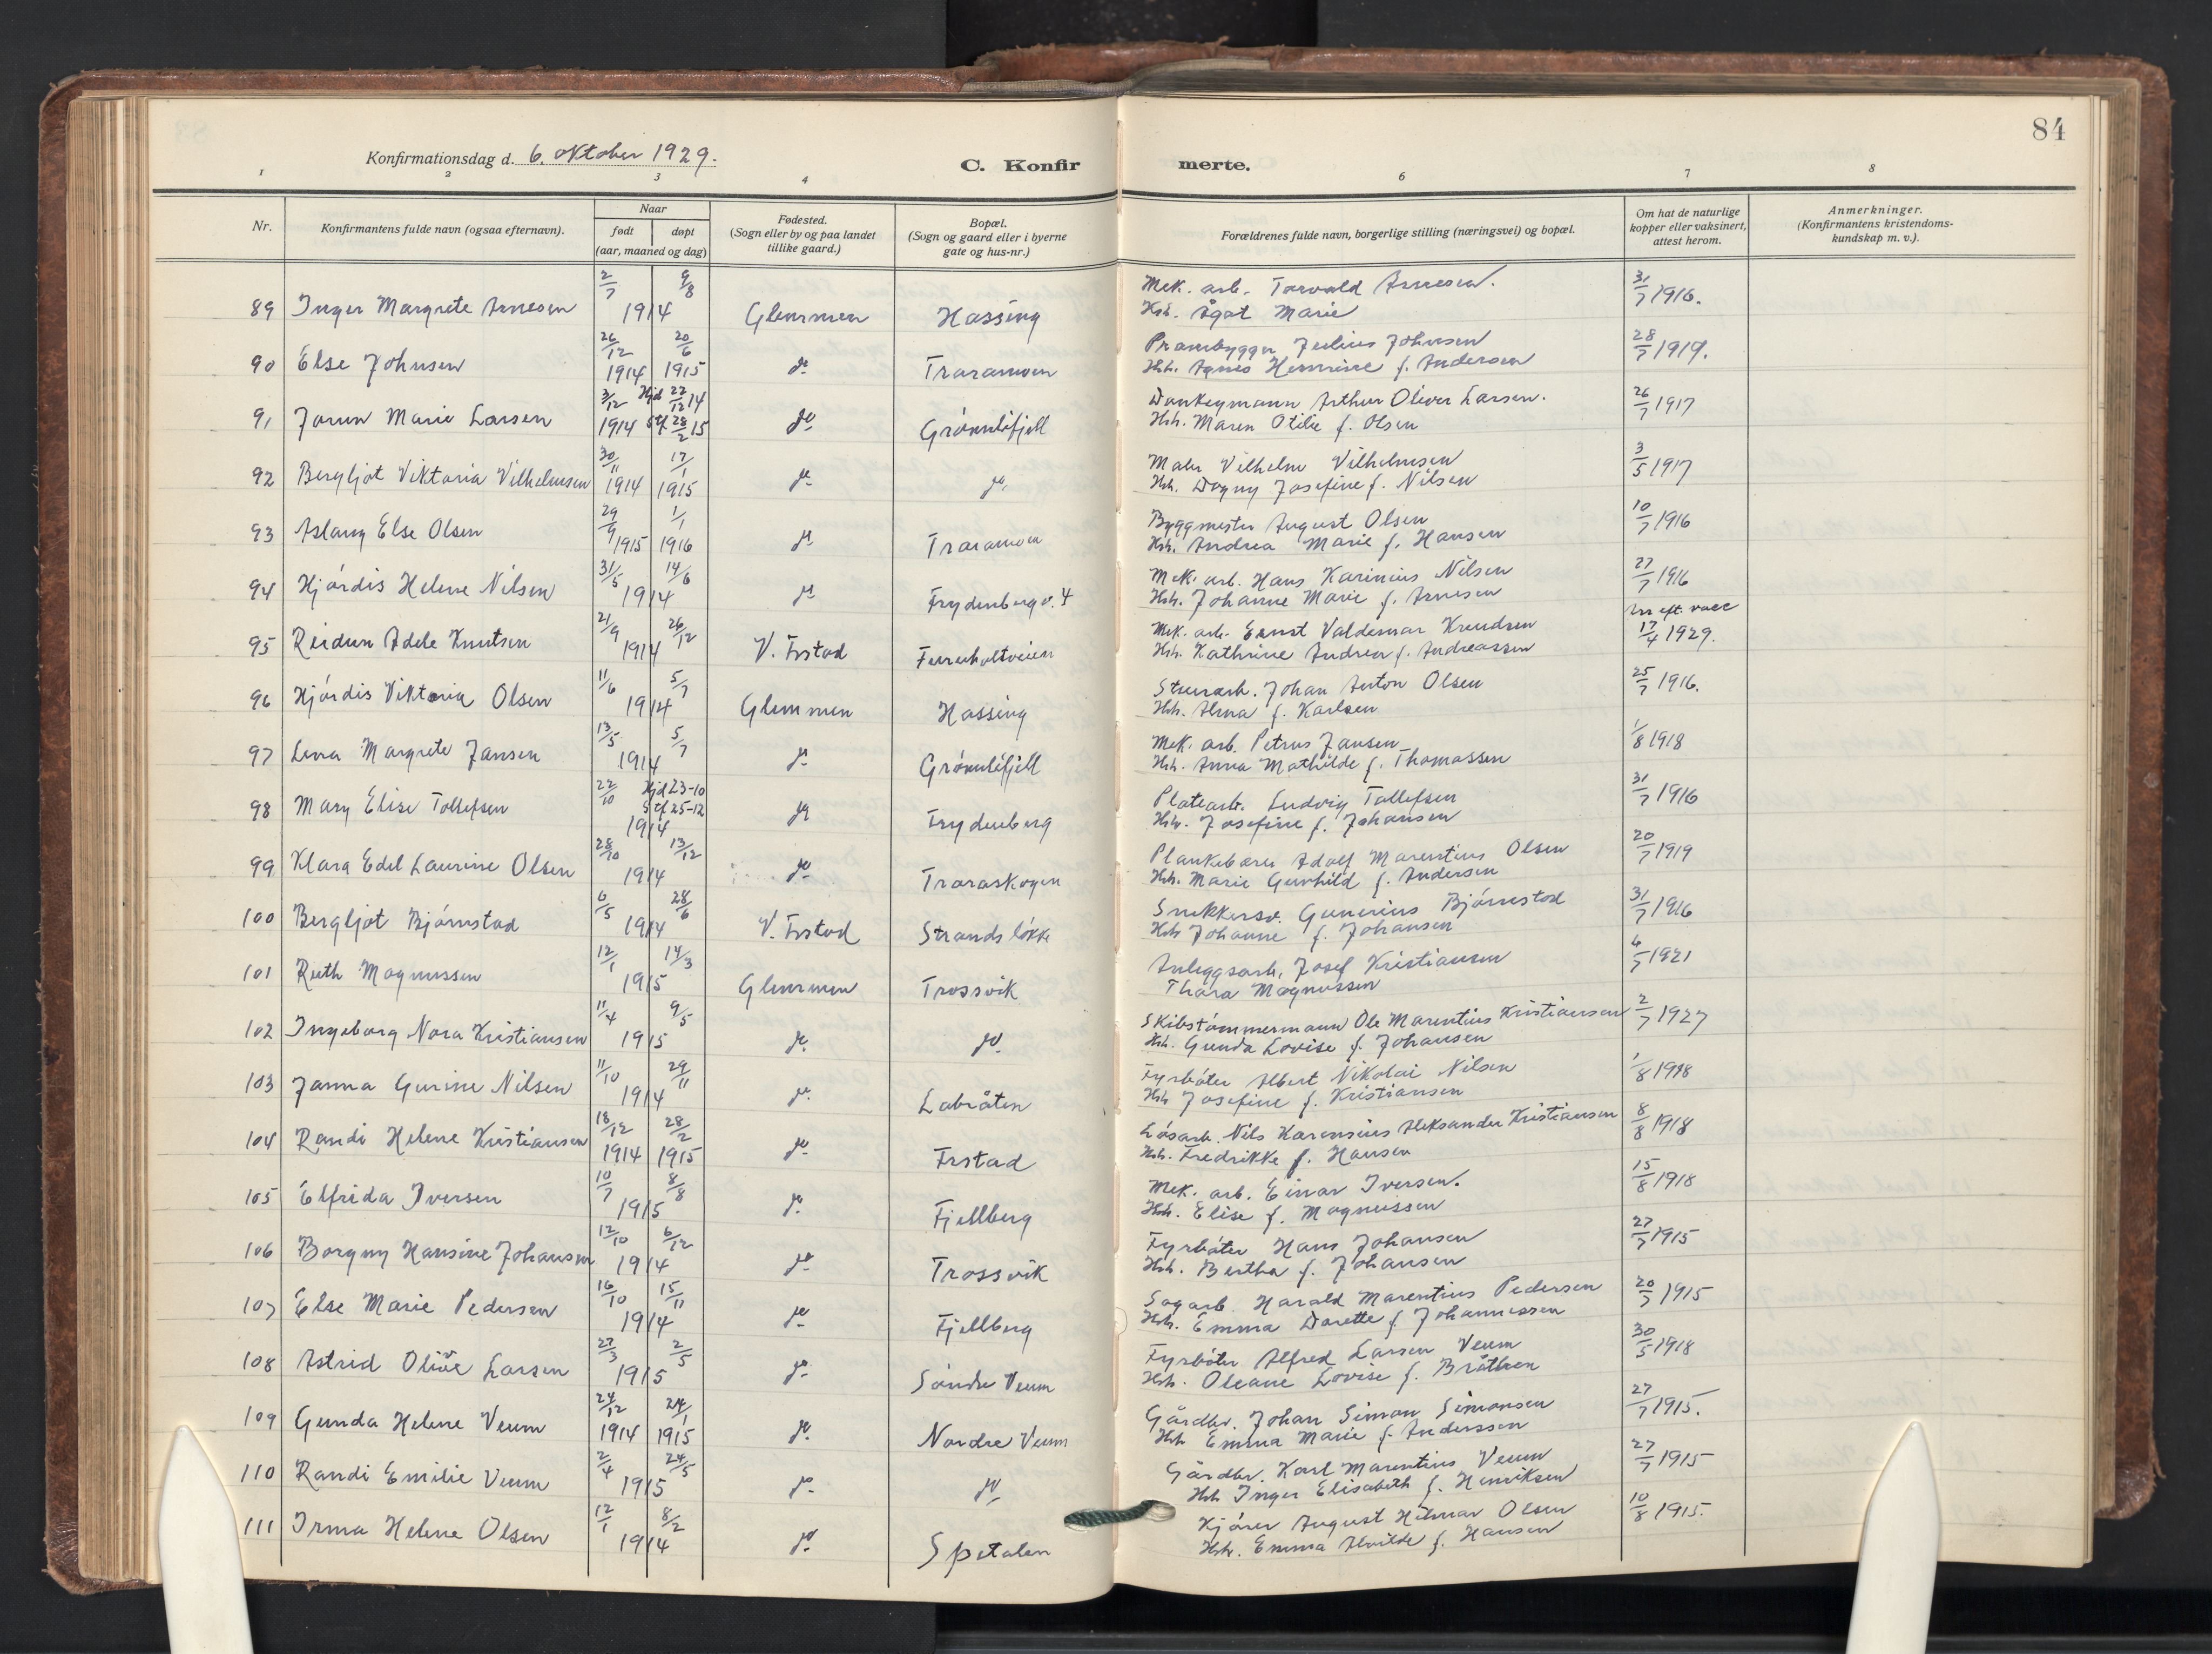 84
Konfirmationsdag d. 6. oktober 1929.
C. Konfir merte.
1 2 3 4 6 7 8
Nr.
Konfirmantens fulde navn (ogsaa efternavn).
Naar
født døpt
(aar, maaned og dag)
Fødested.
(Sogn eller by og paa landet
tillike gaard.)
Bopæl.
(Sogn og gaard eller i byerne
gate og hus-nr.)
Forældrenes fulde navn, borgerlige stilling (næringsvei) og bopæl.
Om hat de naturlige
kopper eller vaksinert,
attest herom.
Anmerkninger.
(Konfirmantens kristendoms-
kundskap m. v.).
2/7 9/8 Mek. arb. Torvald Arnesen. 31/7 1916.
89 Inger Margrete Arnesen 1914 Glemmen Hassing Hst. Ågot Marie
26/12 20/6 Prambygger Julius Johnsen 28/7 1919.
90 Else Johnsen 1914 1915 do Traraveien Hst. Agnes Henrine f. Andersen
3/12 Hjd 22/12 14 Donkeymann Arthur Oliver Larsen. 26/7 1917
91 Jorun Marie Larsen 1914 Stf. 28/2 15 do Grønnlifjell Hst. Maren Otilie f. Olsen
30/11 17/1 Maler Vilhelm Vilhelmsen 3/5 1917
92 Bergljot Viktoria Vilhelmsen 1914 1915 do do Hst. Dagny Josefine f. Nilsen
29/9 1/1 Byggmester August Olsen 10/7 1916
93 Aslaug Else Olsen 1915 1916 do Traraveien Hst. Andrea Marie f. Hansen
31/5 14/6 Mek. arb. Hans Karinius Nilsen 27/7 1916
94 Hjørdis Helene Nilsen 1914 do Frydenberg v. 4 Hst. Johanne Marie f. Arnesen
21/9 26/12 Mek. arb. Ernst Valdemar Knudsen 17/4 1929.
95 Reidun Adele Knutsen 1914 V. Frstad Fureholtveien Hst. Kathrine Andrea f. Andreassen
11/6 5/7 Stuerarb. Johan Anton Olsen 25/7 1916.
96 Hjørdis Viktoria Olsen 1914 Glemmen Hassing Hst. Alma f. Karlsen
13/5 5/7 Mek. arb. Petrus Jansen 1/8 1918
97 Lena Margrete Jansen 1914 do Grønnlifjell Hst. Anna Mathilde f. Thomassen
22/10 Hjd 23-10 Platearb. Ludvig Tollefsen 31/7 1916
98 Mary Elise Tollefsen Stf 25-12 1914 do Frydenberg Hst. Josefine f. Johansen
28/10 13/12 Plankebærer Adolf Marentius Olsen 20/7 1919
99 Klara Edel Laurine Olsen 1914 do Traraskogen Hst. Marie Gunhild f. Andersen
6/5 28/6 Snekkersv. Gunerius Bjørnstad 31/7 1916
100 Bergljot Bjørnstad 1914 V. Frstad Strandsløkke Hst Johanne f. Johansen
12/1 14/3 Anleggsarb. Josef Kristiansen 6/7 1921
101 Ruth Magnussen 1915 Glemmen Trossvik Thora Magnussen
11/4 9/5 Skibstømmermann Ole Marentius Kristiansen 2/7 1927
102 Ingeborg Nora Kristiansen 1915 do do Hst. Gunda Lovise f. Johansen
11/10 29/11 Fyrbøter Albert Nikolai Nilsen 1/8 1918
103 Janna Gurine Nilsen 1914 do Labråten Hst Josefine f. Kristiansen
18/12 28/2 Løsarb. Nils Karensius Aleksander Kristiansen 8/8 1918
104 Randi Helene Kristiansen 1914 1915 do Frstad Hst. Fredrikke f. Hansen
10/7 8/8 Mek. arb. Einar Iversen. 15/8 1918
105 Elfrida Iversen 1915 do Fjellberg Hst. Elise f. Magnussen
12/10 6/12 Fyrbøter Hans Johansen 27/7 1915
106 Borgny Hansine Johansen 1914 do Trossvik Hst. Bertha f. Johansen
16/10 15/11 Sagarb. Harald Marentius Pedersen 20/7 1915
107 Else Marie Pedersen 1914 do Fjellberg Hst. Emma Dorette f. Johannessen
27/3 2/5 Fyrbøter Alfred Larsen Veum 30/5 1918
108 Astrid Olise Larsen 1915 do Søndre Veum Hst. Oleane Lovise f. Bråthen
24/12 24/1 Gårdbr. Johan Simon Simonsen 27/7 1915.
109 Gunda Helene Veum 1914 1915 do Nordre Veum Hst Emma Marie f. Anderssen
2/4 24/5 Gårdbr. Karl Marentius Veum 27/7 1915
110 Randi Emilie Veum 1915 do do Hst Inger Elisabeth f. Henriksen
12/1 8/2 Kjører August Hilmar Olsen 10/8 1915.
111 Irma Helene Olsen 1914 do Spetalen Hst. Emma Alvilde f. Hansen